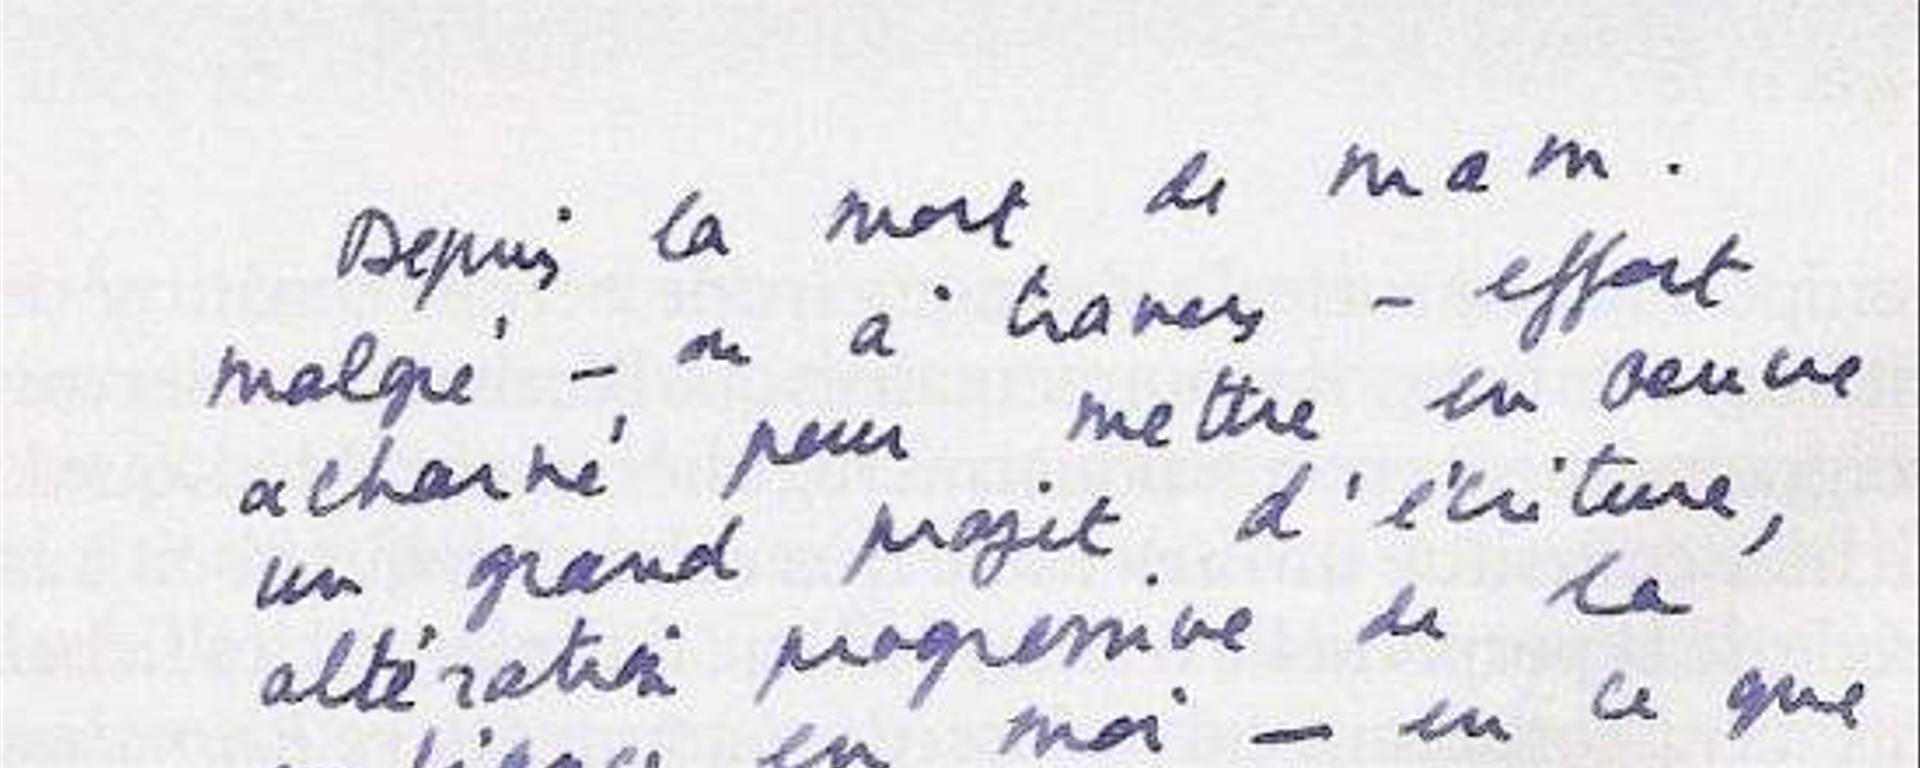 Depuis la mort de mam.
malgré – ou à travers – effort
acharné, pour mettre en œuvre
un grand projet d'écriture,
altération progressive de la
confiance en moi – en ce que